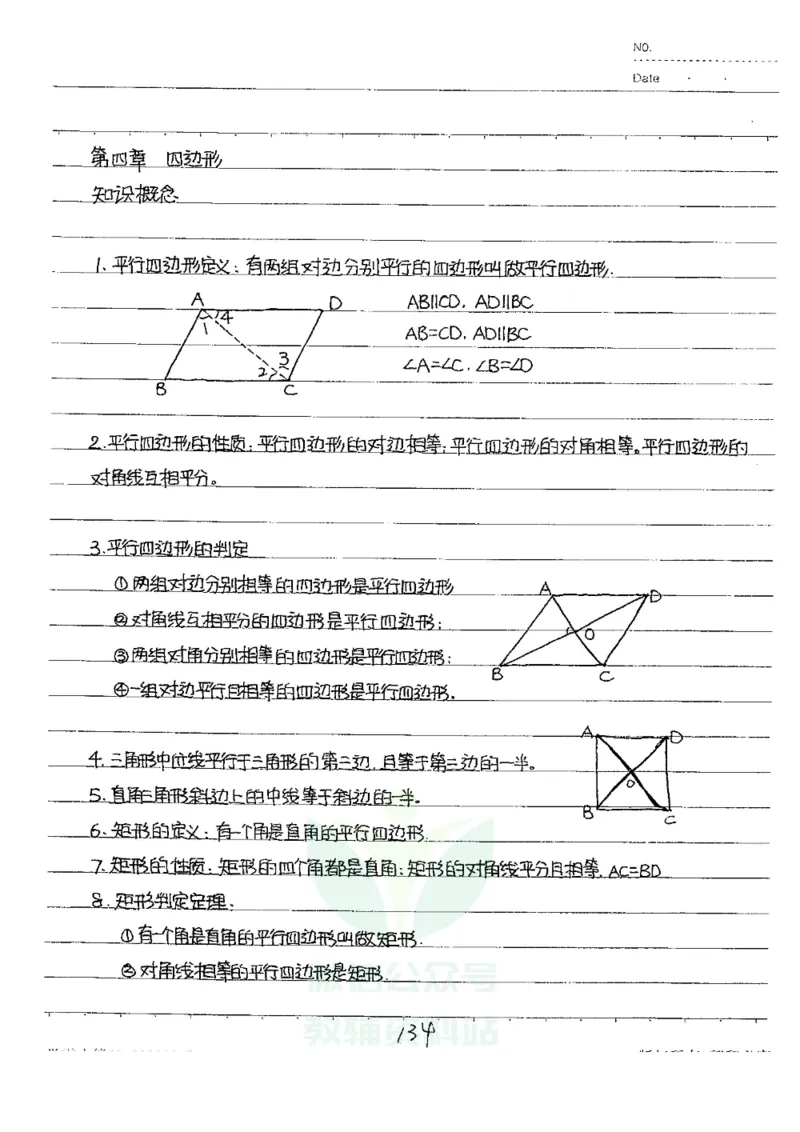 NO.
Date
第四章 四边形
知识概念
1、平行四边形定义：有两组对边分别平行的四边形叫做平行四边形.
A D
AB∥CD，AD∥BC
1 4
AB=CD，AD∥BC
3
2
∠A=∠C，∠B=∠D
B C
2.平行四边形的性质：平行四边形的对边相等；平行四边形的对角相等。平行四边形的
对角线互相平分。
3.平行四边形的判定
①两组对边分别相等的四边形是平行四边形
A D
②对角线互相平分的四边形是平行四边形；
O
③两组对角分别相等的四边形是平行四边形；
B C
④一组对边平行且相等的四边形是平行四边形.
A D
4.三角形中位线平行于三角形的第三边.且等于第三边的一半。
O
5.直角三角形斜边上的中线等于斜边的一半。
B C
6、矩形的定义：有一个角是直角的平行四边形.
7.矩形的性质：矩形的四个角都是直角；矩形的对角线平分且相等. AC=BD
8.矩形判定定理：
①有一个角是直角的平行四边形叫做矩形.
③对角线相等的平行四边形是矩形.
微信公众号
教辅资料站
134